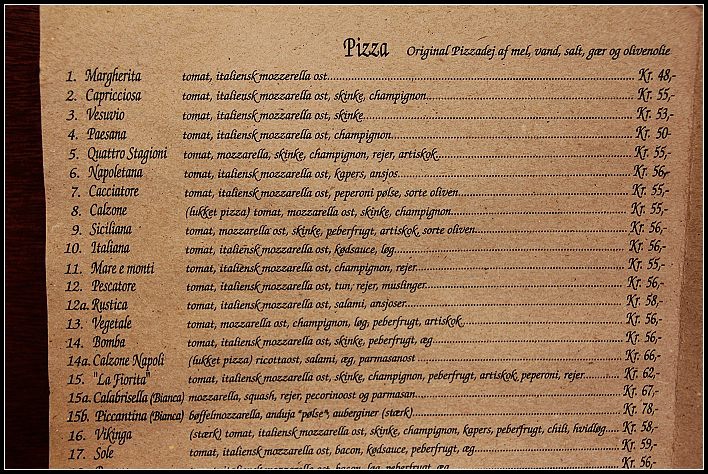 Pizza Original Pizzadej af mel, vand, salt, gær og olivenolie
1. Margherita tomat, italiensk mozzerella ost Kr. 48,-
2. Capricciosa tomat, italiensk mozzarella ost, skinke, champignon Kr. 55,-
3. Vesuvio tomat, italiensk mozzarella ost, skinke Kr. 53,-
4. Paesana tomat, italiensk mozzarella ost, champignon Kr. 50-
5. Quattro Stagioni tomat, mozzarella, skinke, champignon, rejer, artiskok Kr. 55,-
6. Napoletana tomat, italiensk mozzarella ost, kapers, ansjos Kr. 56,-
7. Cacciatore tomat, italiensk mozzarella ost, peperoni pølse, sorte oliven Kr. 55,-
8. Calzone (lukket pizza) tomat, mozzarella ost, skinke, champignon Kr. 55,-
9. Siciliana tomat, mozzarella ost, skinke, peberfrugt, artiskok, sorte oliven Kr. 56,-
10. Italiana tomat, italiensk mozzarella ost, kødsauce, løg Kr. 56,-
11. Mare e monti tomat, italiensk mozzarella ost, champignon, rejer Kr. 55,-
12. Pescatore tomat, italiensk mozzarella ost, tun, rejer, muslinger Kr. 56,-
12a. Rustica tomat, italiensk mozzarella ost, salami, ansjoser Kr. 58,-
13. Vegetale tomat, mozzarella ost, champignon, løg, peberfrugt, artiskok Kr. 56,-
14. Bomba tomat, italiensk mozzarella ost, skinke, peberfrugt, æg Kr. 56,-
14a. Calzone Napoli (lukket pizza) ricottaost, salami, æg, parmasanost Kr. 66,-
15. "La Fiorita" tomat, italiensk mozzarella ost, skinke, champignon, peberfrugt, artiskok, peperoni, rejer Kr. 62,-
15a. Calabrisella (Bianca) mozzarella, squash, rejer, pecorinoost og parmasan Kr. 67,-
15b. Piccantina (Bianca) bøffelmozzarella, anduja "pølse", auberginer (stærk) Kr. 78,-
16. Vikinga (stærk) tomat, italiensk mozzarella ost, skinke, champignon, kapers, peberfrugt, chili, hvidløg Kr. 58,-
17. Sole tomat, italiensk mozzarella ost, bacon, kødsauce, peberfrugt, æg Kr. 59,-
tomat, italiensk mozzarella ost, bacon, løg, peberfrugt, æg Kr. 56,-